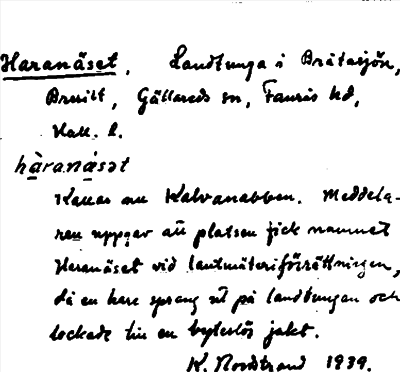 Haranäset, Landtunga i Bråtasjön,
Gällareds sn, Faurås hd,
Hall. l.
hàranä̀sət
Kallas nu Kalvanabben. Meddela-
ren uppgav att platsen fick namnet
Haranäset vid lantmäteriförrättningen,
då en hare sprang ut på landtungan och
lockade till en bytelös jakt.
K. Nordstrand 1939.